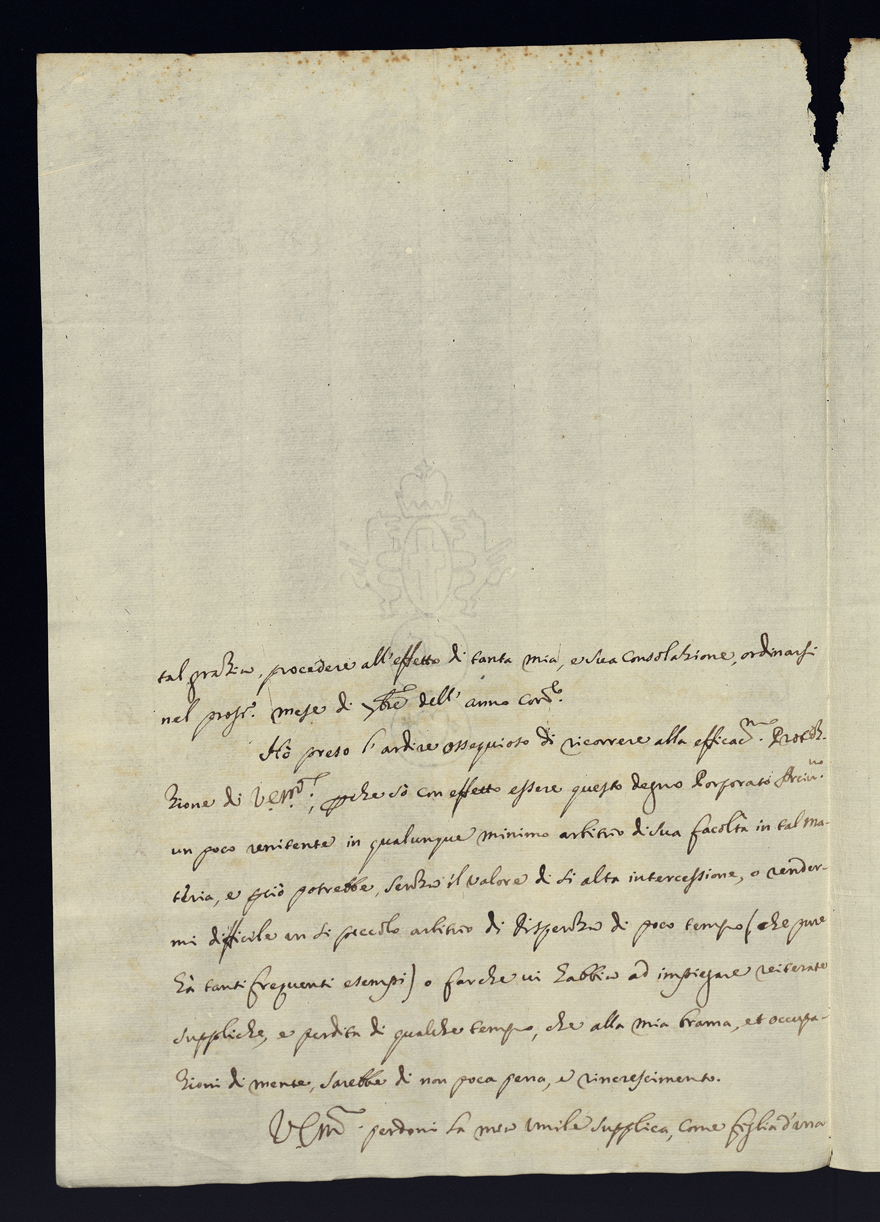 tal grazia, procedere all'effetto di tanta mia, e sua Consolazione, ordinarsi
nel pross.º mese di Xbre dell' anno corr.e
Hò preso l'ardire ossequioso di ricorrere alla efficacma. Protez-
zione di V. Emza, pche sò con effetto essere questo degno Porporato Arciv.vo
un poco renitente in qualunque minimo arbitrio di sua facoltà in tal ma-
teria, e pciò potrebbe, senza il valore di si alta intercessione, o render-
mi difficile un si piccolo arbitrio di dispenza di poco tempo (che pure
hà tanti frequenti esempi) o farche vi habbia ad impiegare reiterate
suppliche, e perdita di qualche tempo, che alla mia brama, et occupa-
zioni di mente, sarebbe di non poca pena, e rincrescimento.
V. Emza perdoni la mia umile supplica, come figlia d'una